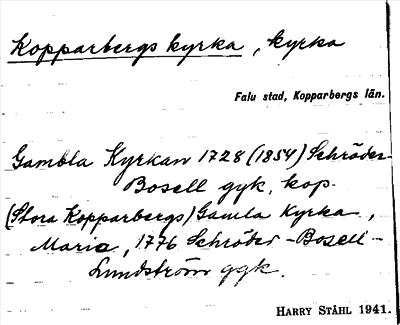 Kopparbergs kyrka, kyrka
Falu stad, Kopparbergs län.
Gambla Kyrkan 1728 (1854) Schröder-
Bosell gyk, kop.
(Stora Kopparbergs) Gamla Kyrka,
Maria, 1776 Schröder-Bosell-
Lundström gyk.
HARRY STÅHL 1941.